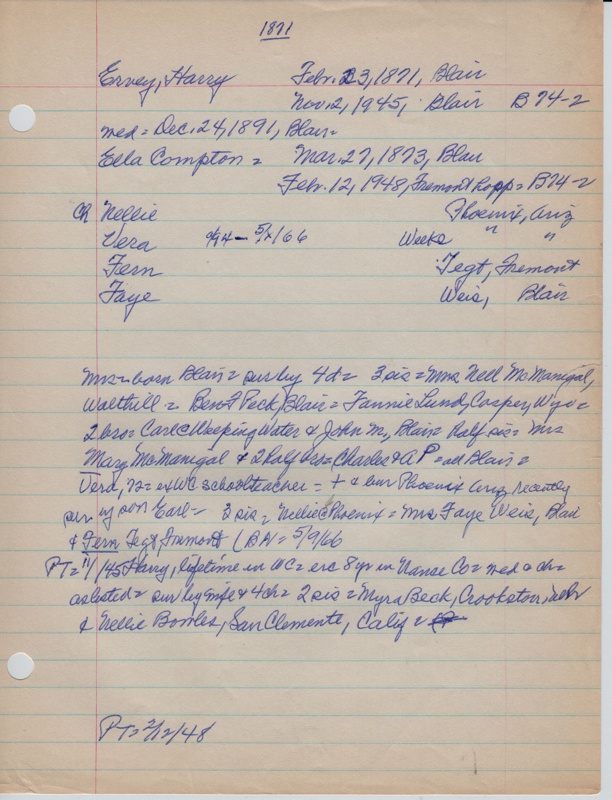 1871
Ervey, Harry Febr. 23, 1871, Blair
Nov. 2, 1945, Blair B 74-2
med = Dec. 24, 1891, Blair =
Ella Compton = Mar. 27, 1873, Blair
Febr. 12, 1948, Fremont hosp = B74-2
Ch Nellie Phoenix, Ariz
Vera - 5/ /66 Weeks " "
Fern Tegt, Fremont
Faye Weis, Blair
Mrs = born Blair = sur by 4 d = 3 sis = Mrs Nell McManigal,
Walthill = Ben F Peck, Blair = Fannie Lund, Casper, Wyo =
2 bro = Carl @ Weeping Water & John M, Blair = Half sis = Mrs
Mary McManigal & 2 half bro = Charles & A P = all Blair =
Vera, 72 = ex WC schoolteacher = + & bur Phoenix Ariz, recently
sur by son Earl = 3 sis = Nellie @ Phoenix = Mrs Faye Weis, Blair
& Fern Tegt, Fremont (BA = 5/9/66
PT = 11/ /45 Harry, lifetime in WC = exc 8 yr in Nance Co = med & ch =
as listed = sur by wife & 4 ch = 2 sis = Myra Beck, Crookston, Nebr
& Nellie Bowles, San Clemente, Calif =
PT = 2/12/48